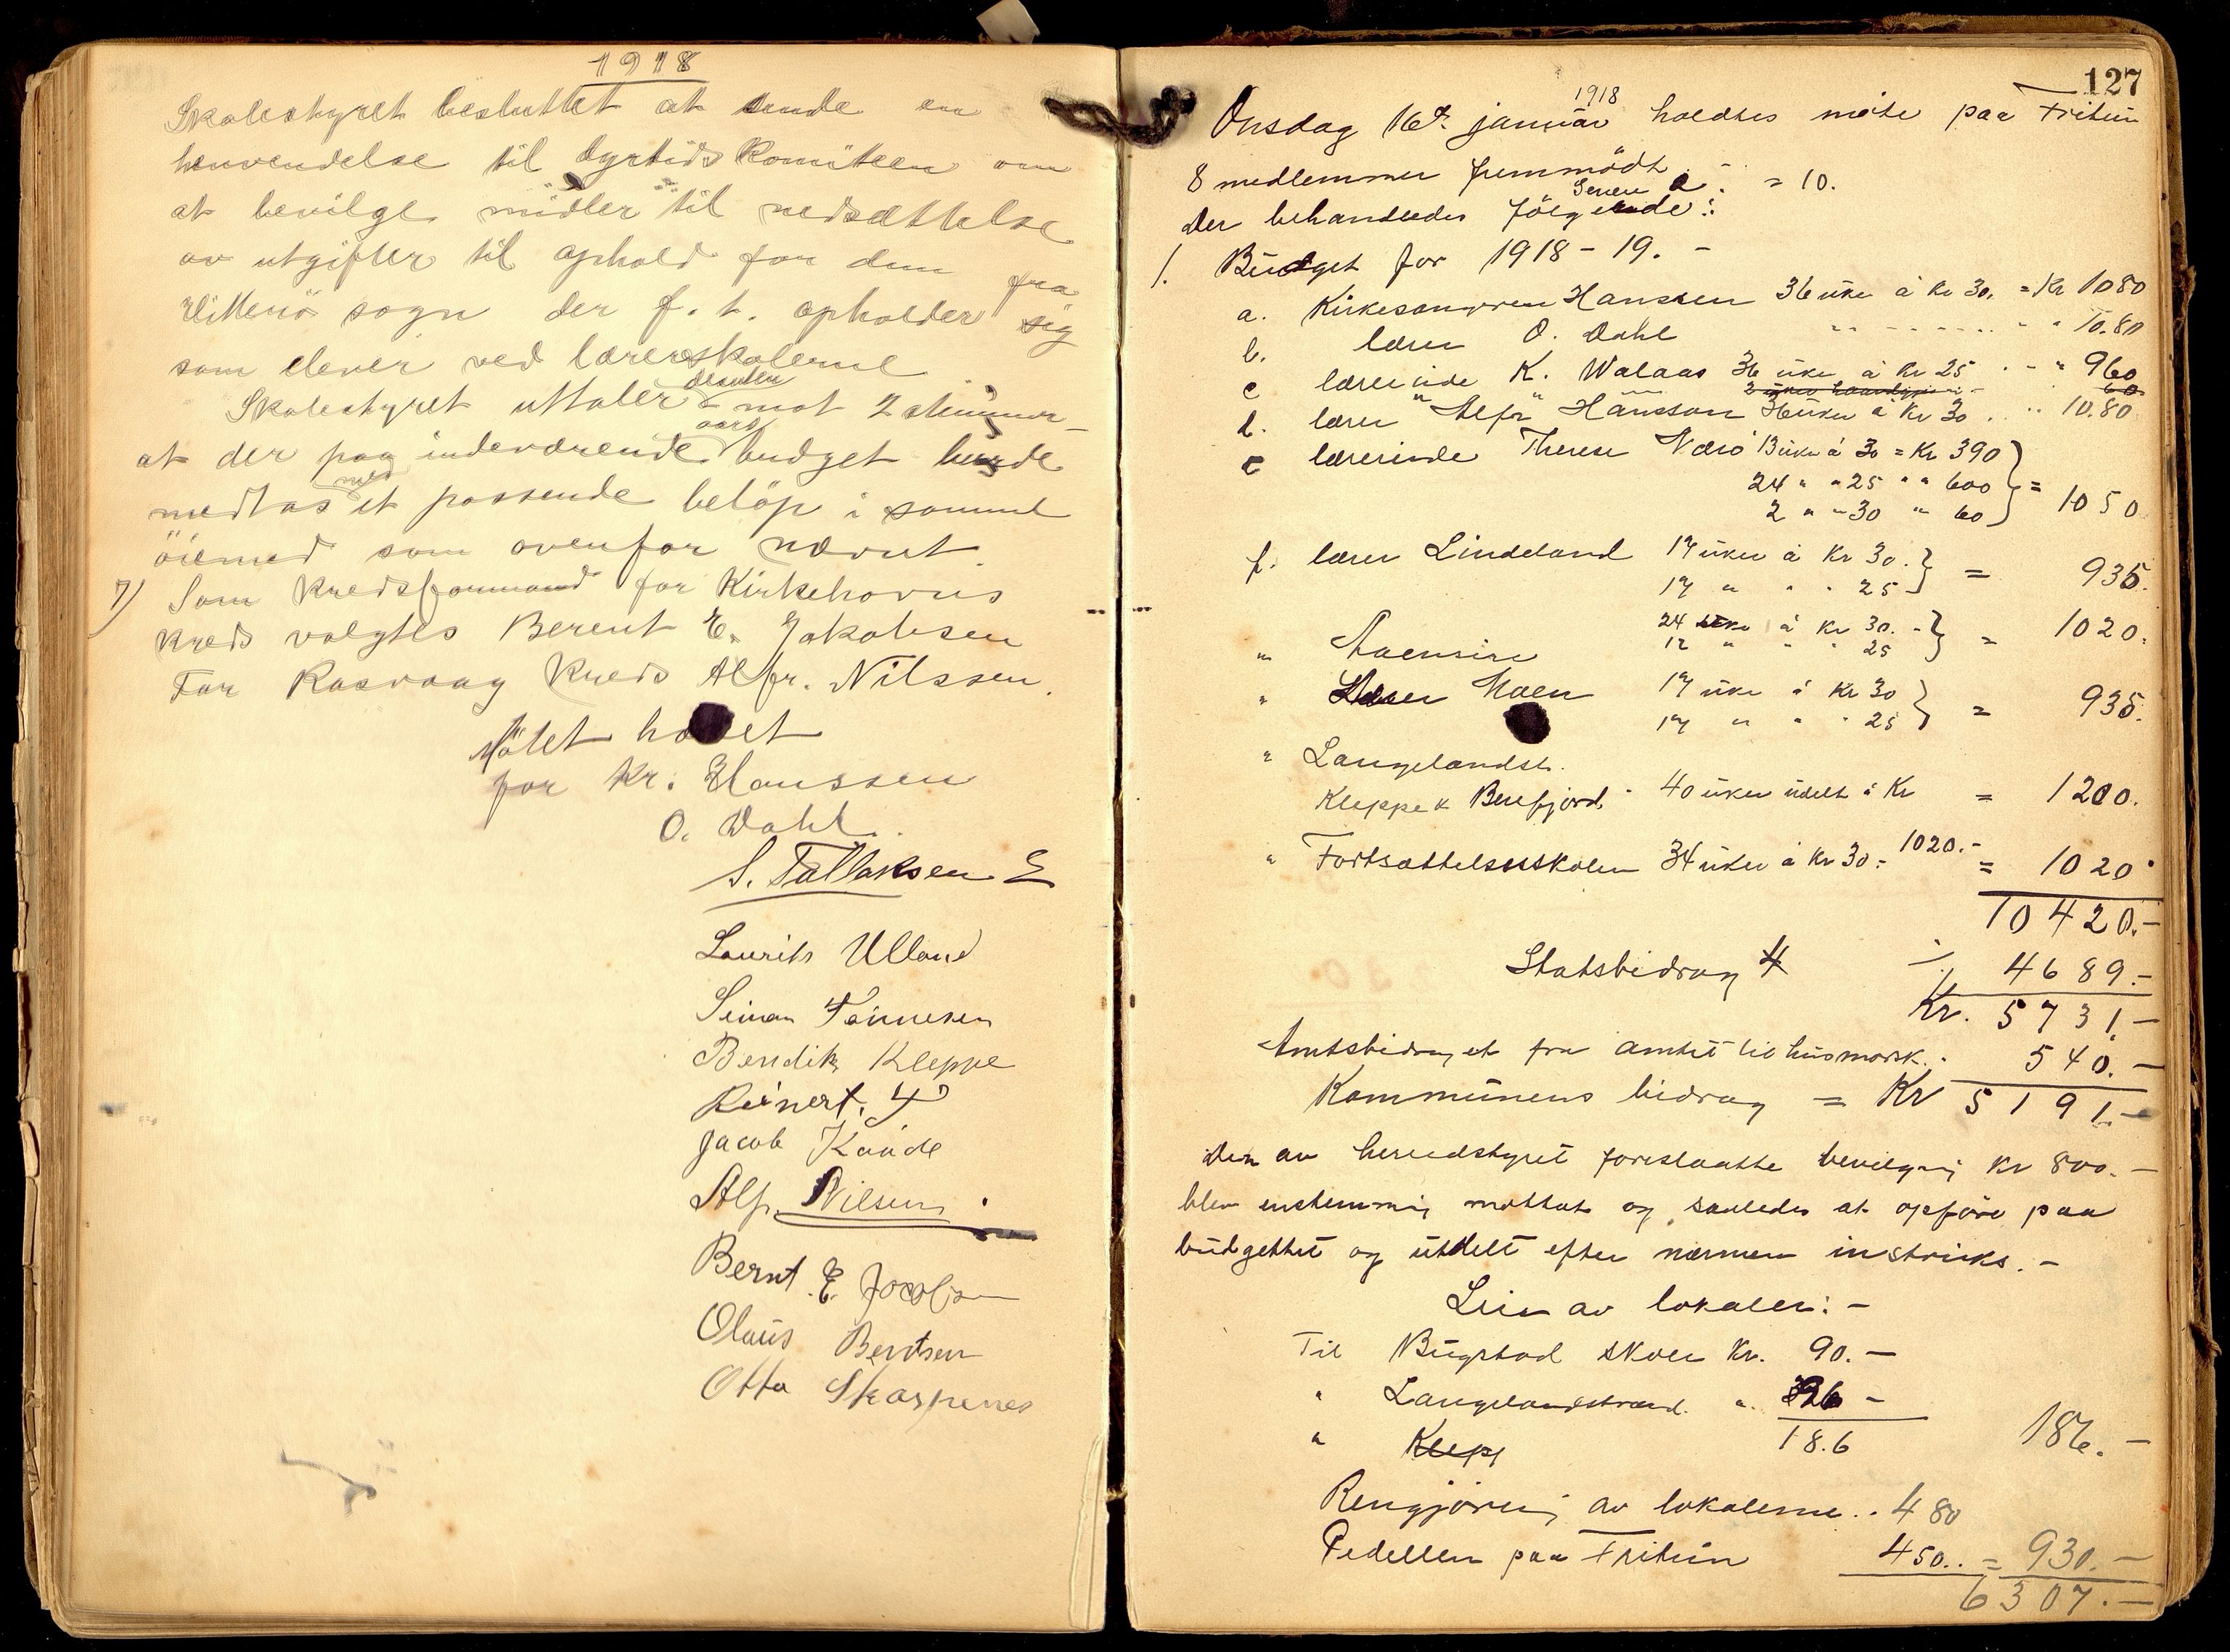 1918
Skolestyret besluttet at sende en
henvendelse til dyrtidskomiteen om
at bevilge midler til nedsættelse
av utgifter til ophold for dem fra
Hitterö sogn der f. t. opholder sig
som elever ved lærerskolerne
Skolestyret uttaler desuten mot 2 stemmer
at der paa indeværende aars budget burde
medtas et passende belöp i samme
öiemed som ovenfor nævnt.
7) Som kredsformand for Kirkehavns
kreds valgtes Berent E. Jakobsen
For Rasvaag kreds Alfr. Nilssen.
Mötet hævet
for Kr. Hanssen
O. Dahl.
S. Tallaksen E
Laurits Ulland
Simon Tönnesen
Bendik Kleppe
Reinert.
Jacob Kaade
Alf. Nilsen.
Bernt. E. Jacobsen
Olaus Berntsen
Otto Skarpenes
127
Onsdag 16de januar 1918 holdtes möte paa Fritun
8 medlemmer fremmödt = 10.
Der behandledes fölgende:
1. Budget for 1918-19. -
a. Kirkesangeren Hanssen 36 uker á kr 30. = Kr 1080
b. lærer O. Dahl " " 10.80
c lærerinde K. Walaas 36 uker á kr 25 . - " 960
60
d. lærer "Alfr" Hansson 36 uker á kr 30 . . 10.80
e lærerinde Therese Næsö 13 uker á 30 = Kr 390
24 " " 25 " " 600 = 1050
2 " " 30 " 60
f. lærer Lindeland 17 uker á kr 30.
17 " " " 25 = 935.
" Aaensire 24 uker á kr 30. - = 1020.
12 " " " 25
" Lærer Moen 17 uker á kr 30
17 " " " 25 = 935.
" Langelandst.
Kleppe & Berefjord - 40 uker udelt á kr = 1200.
" Fortsættelsesskolen 34 uker á kr 30 = 1020.- = 1020
10420.-
Statsbidrag 4 ÷ 4689.-
Kr. 5731.-
Amtsbidraget fra amtet til husmorsk. . 540.-
Kommunens bidrag = Kr 5191.-
Den av herredstyret foreslaatte bevilgning kr 800.-
blev enstemmig mottat og saaledes at opföre paa
budgettet og utdelt efter nærmere instruks. -
Leie av lokaler: -
Til Bugstad skole kr. 90.-
" Langelandstrand. " 96 -
" Klepp 18.6 186.-
Rengjöring av lokalerne . . 480
Pedellen paa Fritun 450.. = 930.-
6307.-